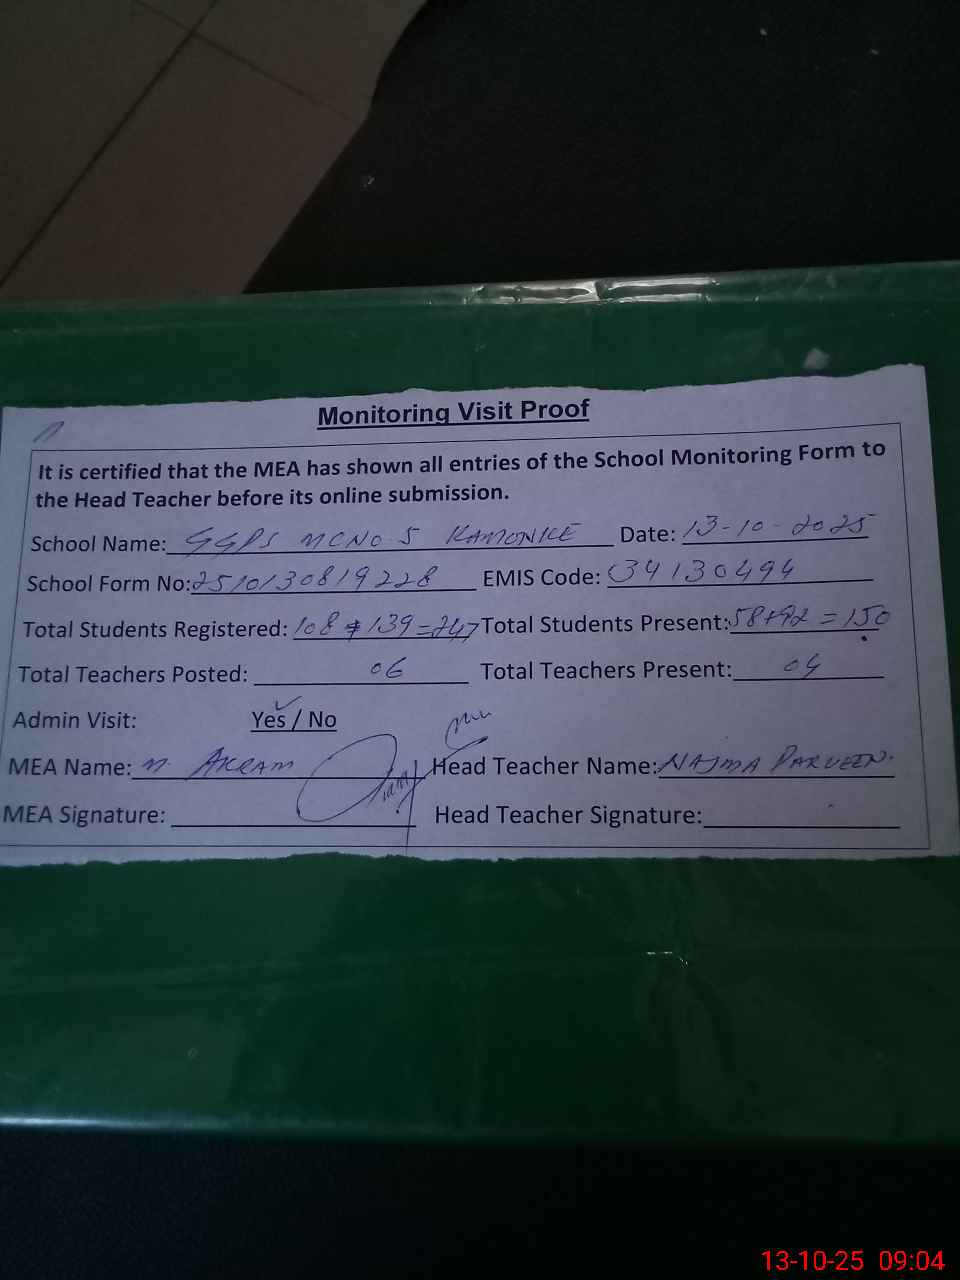 Monitoring Visit Proof
It is certified that the MEA has shown all entries of the School Monitoring Form to
the Head Teacher before its online submission.
School Name: GGPS MCNO 5 KAMONKE Date: 13-10-2025
School Form No: 2510130819228 EMIS Code: 34130494
Total Students Registered: 108+139=247 Total Students Present: 58+92=150
Total Teachers Posted: 06 Total Teachers Present: 04
Admin Visit: Yes / No
MEA Name: M. AKRAM Head Teacher Name: NAJMA PARVEEN.
MEA Signature: Head Teacher Signature:
13-10-25 09:04